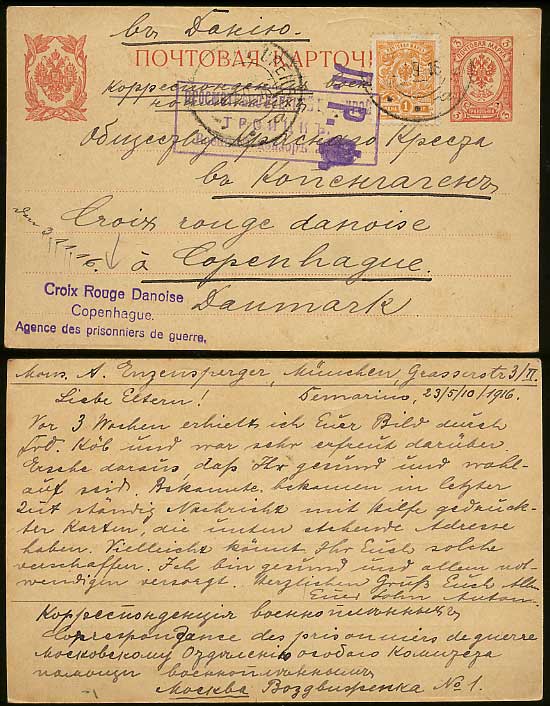 въ Данію.
ПОЧТОВАЯ КАРТОЧ
Корреспонденція воен
ноплѣнныхъ
Д. Р.
1
ТРОИЦКЪ
Общество Краснаго Креста
въ Копенгагенъ
Croix rouge danoise
den 3/11 16.
à Copenhague.
Danmark
Croix Rouge Danoise
Copenhague.
Agence des prisonniers de guerre.
Mons. A. Enzensperger, München Grasserstr 3/II.
Liebe Eltern! 23/5/10/1916.
Vor 3 Wochen erhielt ich Euer Bild durch
Frd. Kob und war sehr erfreut darüber.
Ersehe daraus, daß Ihr gesund und wohl-
auf seid. Bekannte bekamen in letzter
Zeit ständig Nachricht mit Hilfe gedruck-
ter Karten, die unten stehende Adresse
haben. Vielleicht könnt Ihr Euch solche
verschaffen. Ich bin gesund und allem not-
wendigen versorgt. Herzlichen Gruß Euch Allen
Euer Sohn Anton.
Корреспонденція военноплѣнныхъ
Correspondance des prisonniers de guerre
Московскому Отдѣленію особаго Комитета
помощи военноплѣннымъ
Москва Воздвиженка № 1.